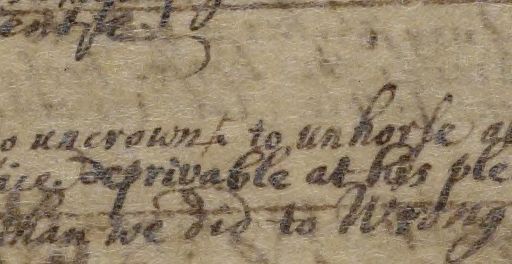 o uncrown & to unhorse at
ice. deprivable at his ple
than we did to Wrong